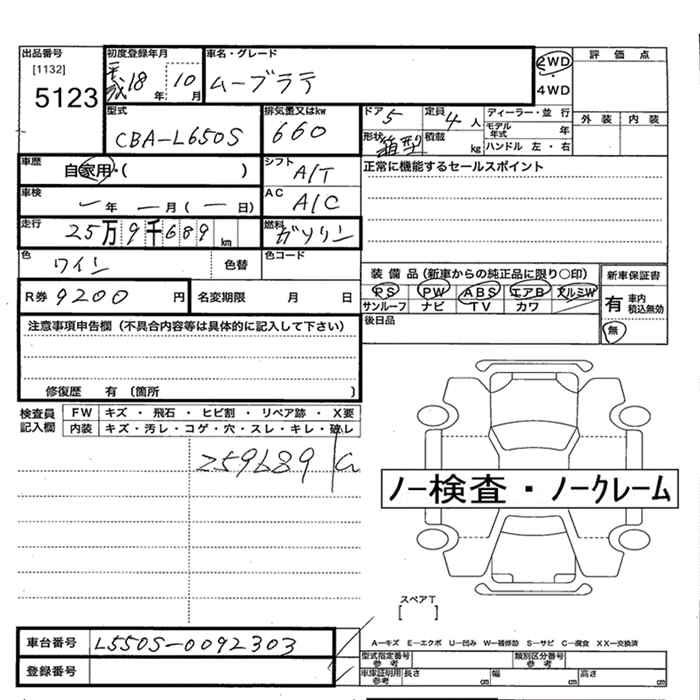 出品番号 初度登録年月 車名・グレード 評価点
[1132] 平成18年 10月 ムーブラテ 2WD・4WD
5123
型式 排気量又はkw ドア 5 定員 4人 ディーラー・並行 外装 内装
CBA-L650S 660 モデル年式 年
形状 箱型 積載 kg ハンドル 左・右
車歴 自家用・( ) シフト A/T 正常に機能するセールスポイント
車検 ー年 ー月(ー日) AC A/C
走行 25万9千689km 燃料 ガソリン
色 ワイン 色替 色コード 装備品(新車からの純正品に限り○印) 新車保証書
R券 9200円 名変期限 月 日 PS PW ABS エアB アルミW 有 車内積込無効
サンルーフ ナビ TV カワ
注意事項申告欄(不具合内容等は具体的に記入して下さい) 後日品 無
修復歴 有 〔箇所 〕
検査員記入欄 FW キズ・飛石・ヒビ割・リペア跡・X要
内装 キズ・汚レ・コゲ・穴・スレ・キレ・破レ
259689
ノー検査・ノークレーム
スペアT
[ ]
車台番号 L550S-0092303 A-キズ E-エクボ U-凹み W-補修跡 S-サビ C-腐食 XX-交換済
登録番号 型式指定番号 参考 類別区分番号 参考
車庫証明用 参考 長さ cm 幅 cm 高さ cm